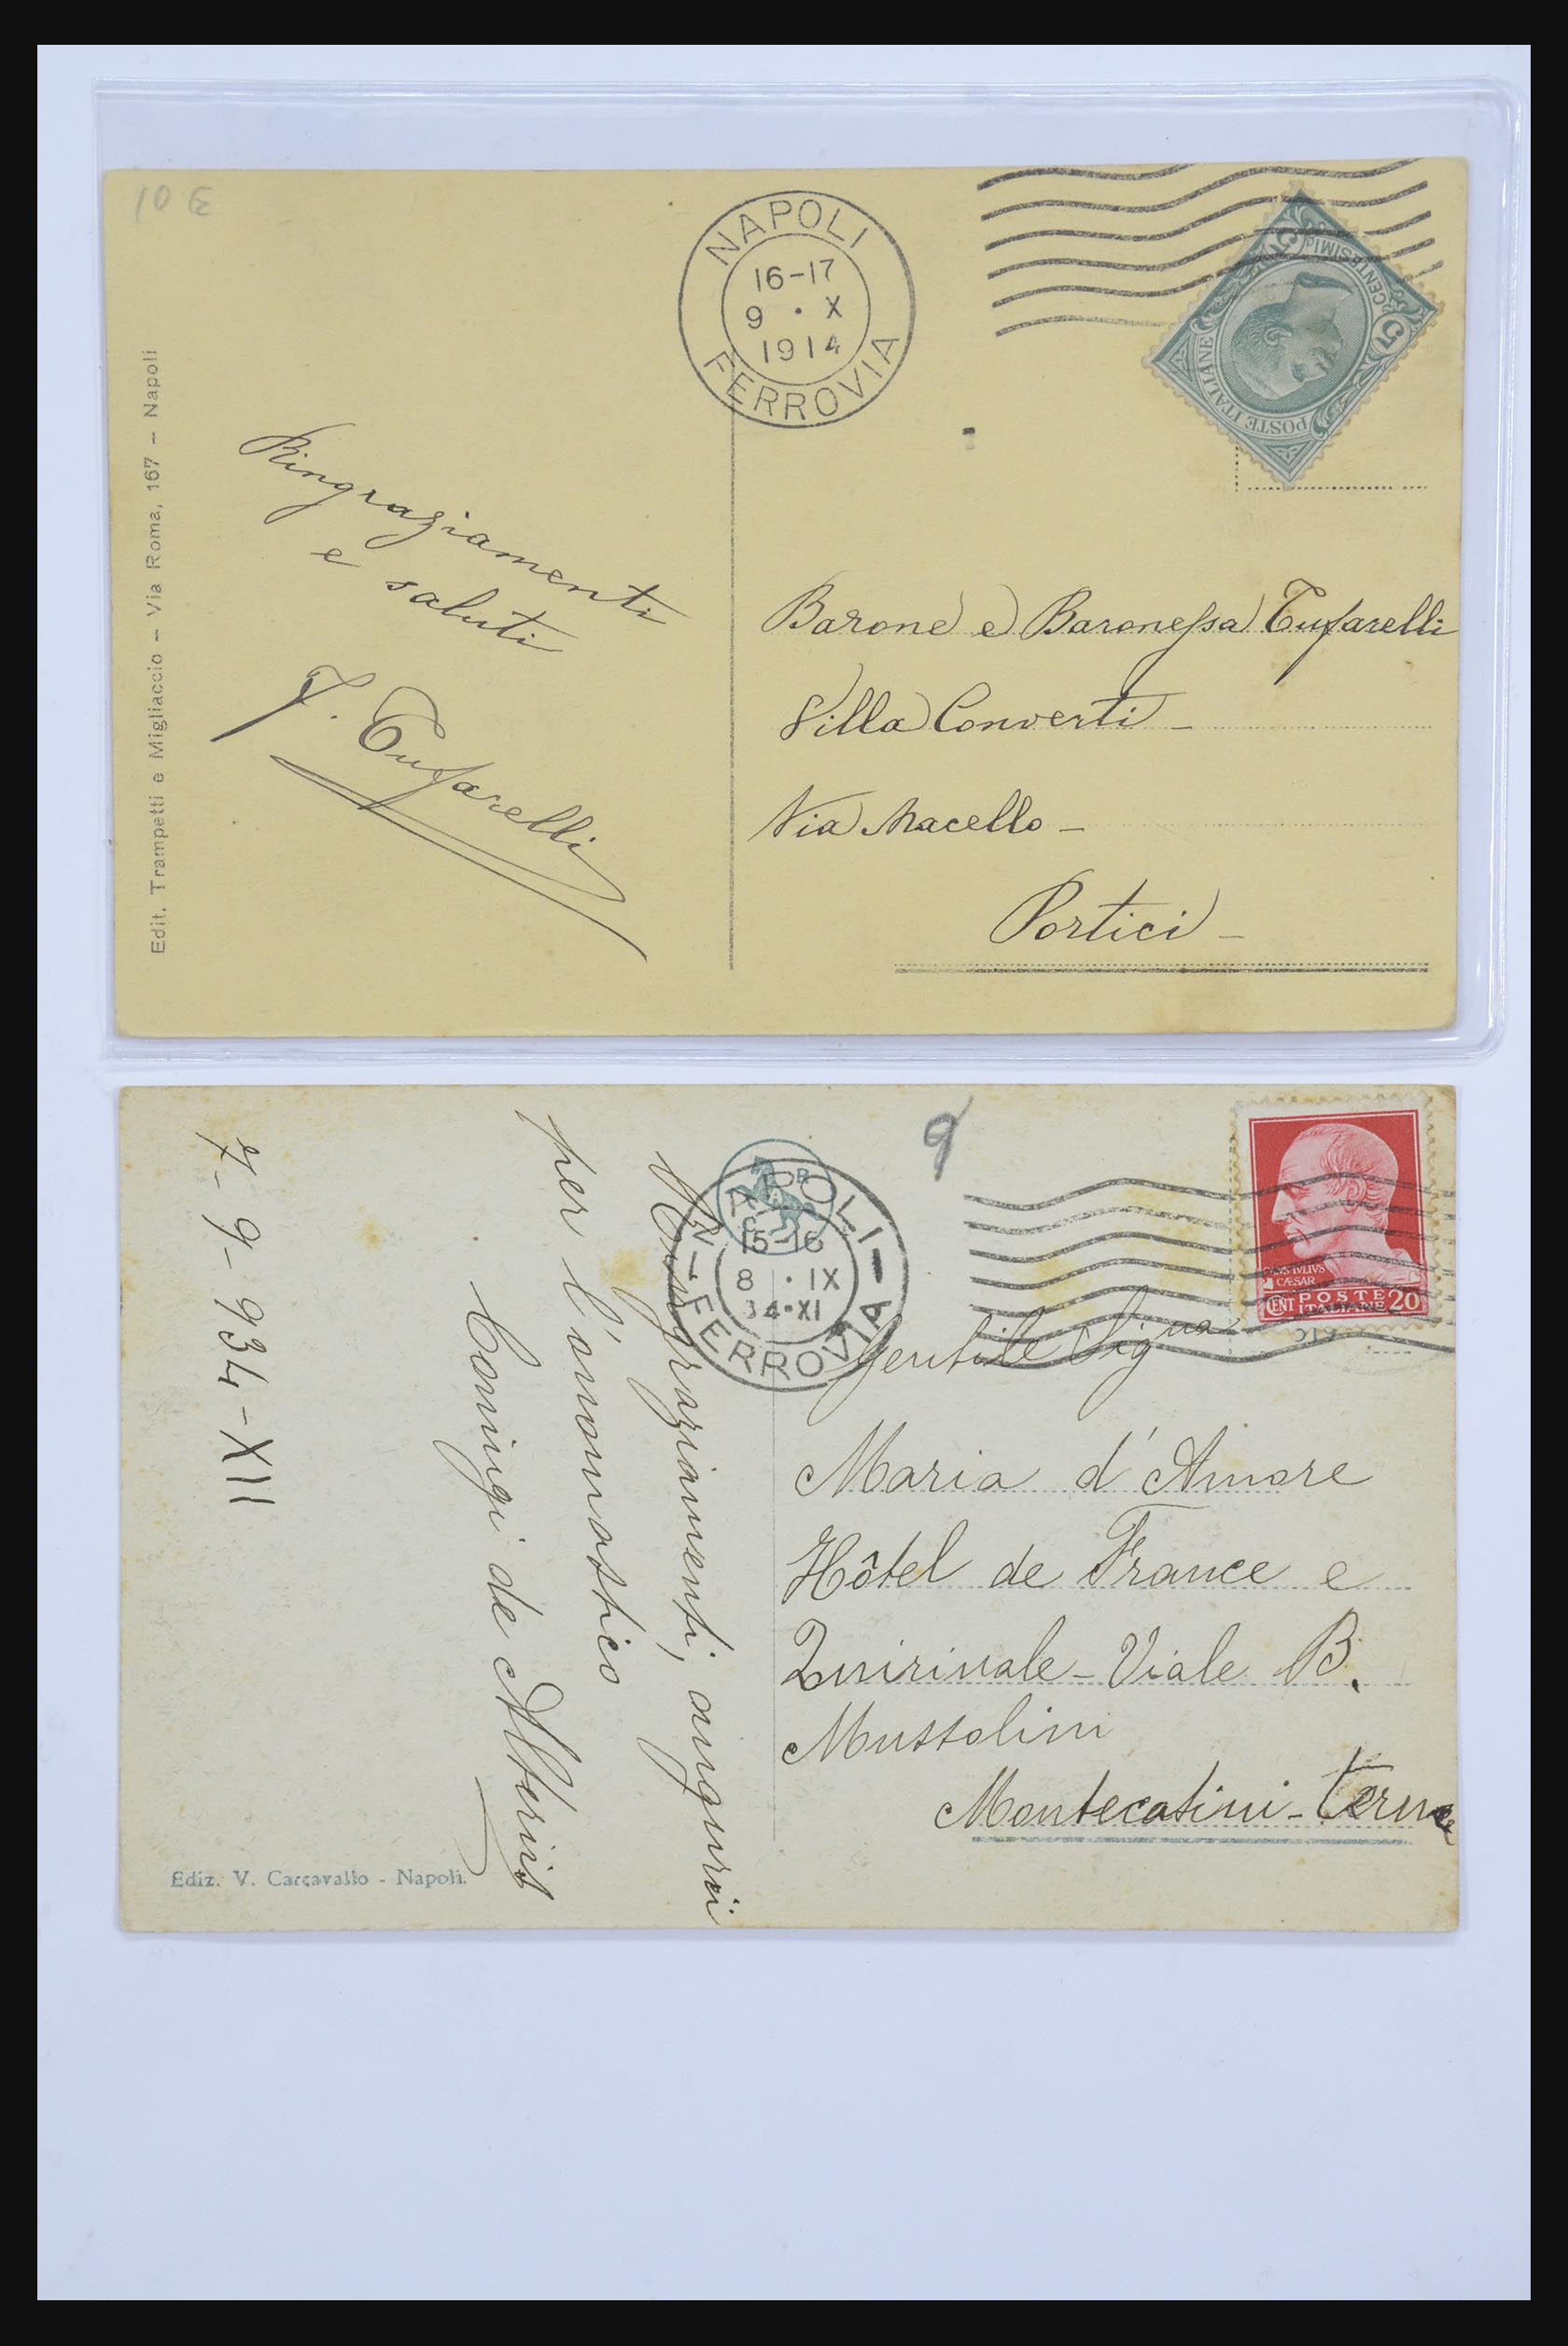 10 E
NAPOLI
16-17
9 · X
1914
FERROVIA
5 CENTESIMI 5
POSTE ITALIANE
Edit. Trampetti e Migliaccio – Via Roma, 167 – Napoli
Ringraziamenti
e saluti
F. Tufarelli
Barone e Baronessa Tufarelli
Villa Converti –
Via Macello –
Portici –
9
NAPOLI
15-16
8 · IX
34·XI
FERROVIA
IVLIVS
CÆSAR
CENT POSTE 20
ITALIANE
7-9-934-XII
Ringraziamenti, auguri
per l'onomastico
Coniugi de
Gentile Signa
Maria d'Amore
Hôtel de France e
Quirinale – Viale B.
Mussolini
Montecatini – terme
Ediz. V. Carcavallo - Napoli.